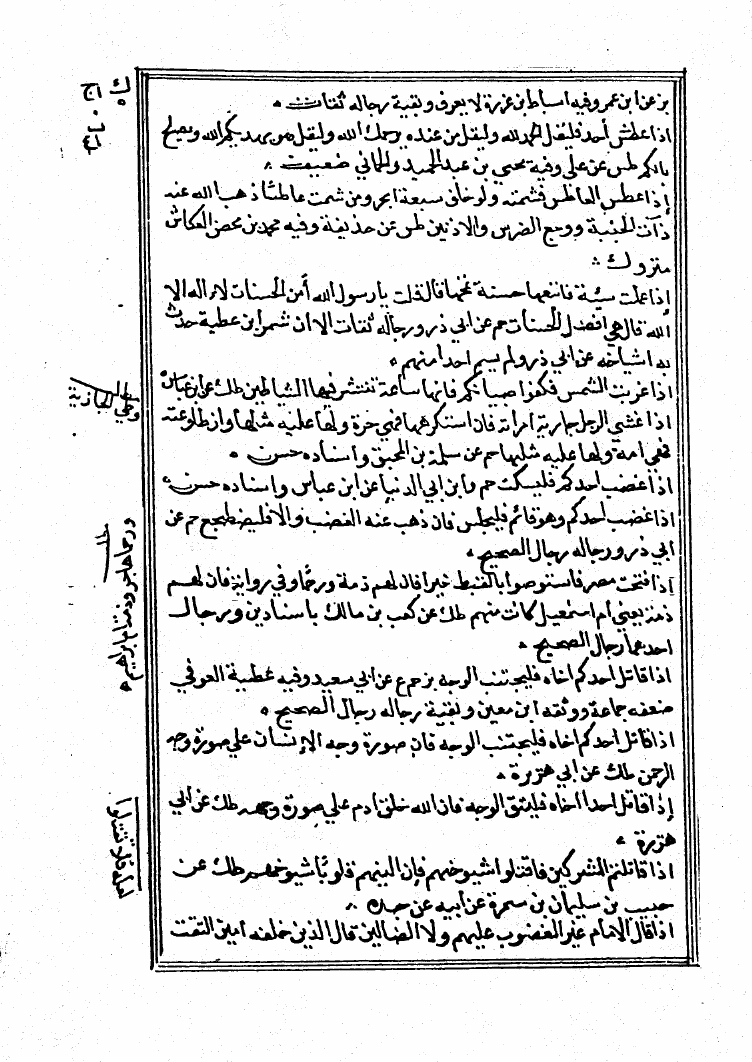 بز عن ابن عمر وفيه اسباط بن عزرة لا يعرف وبقية رجاله ثقات
اذا عطس أحد فليقل الحمد لله وليقل من عنده يرحمك الله وليقل هو يهديكم الله ويصلح
بالكم طس عن علي وفيه يحيى بن عبد الحميد والحماني ضعيف
إذا عطس العاطس فشمته ولو خلف سبعة ابحر ومن شمت عاطسا ذهب الله عنه
ذات الجنبة ووجع الضرس والاذنين طس عن حذيفة وفيه محمد بن محصن العكاشي
متروك
إذا عملت سيئة فاتبعها حسنة تمحها قال قلت يا رسول الله أمن الحسنات لا اله الا
الله قال هي افضل الحسنات حم عن ابي ذر ورجاله ثقات الا ان شمر ابن عطية حدث
به اشياخه عن ابي ذر ولم يسم احدا منهم
اذا غربت الشمس فكفوا صبيانكم فانها ساعة تنتشر فيها الشياطين طك عن ابن عباس
اذا غشي الرجل جارية امراته فان استكرهها فهي حرة ولها عليه مثلها وان طاوعته
فهي امة ولها عليه مثلها حم عن سلمة بن المحبق واسناده حسن
اذا غضب احدكم فليسكت حم وابن ابي الدنيا عن ابن عباس واسناده حسن
اذا غضب احدكم وهو قائم فليجلس فان ذهب عنه الغضب والا فليضطجع حم عن
ابي ذر ورجاله رجال الصحيح
إذا فتحت مصر فاستوصوا بالقبط خيرا فان لهم ذمة ورحما وفي رواية فان لهم
ذمة يعني ام اسمعيل كانت منهم طك عن كعب بن مالك باسنادين ورجال
احدهما رجال الصحيح
اذا قاتل احدكم اخاه فليجتنب الوجه بز حم ع عن ابي سعيد وفيه عطية العوفي
ضعفه جماعة ووثقه ابن معين وبقية رجاله رجال الصحيح
اذا قاتل احدكم اخاه فليجتنب الوجه فان صورة وجه الإنسان علي صورة وجه
الرحمن طك عن ابي هريرة
إذا قاتل احدا اخاه فليتق الوجه فان الله خلق ادم علي صورة وجهه طك عن ابي
هريرة
اذا قاتلتم المشركين فاقتلوا شيوخهم فإن الينهم قلوبا شيوخهم طك عن
حبيب بن سليمان بن سمرة عن ابيه عن جده
اذا قال الامام غير المغضوب عليهم ولا الضالين قال الذين خلفه امين التقت
وعلى الجازية
ورحما هاجر وذمتها م ابراهيم
لعله فلا تقتلوا